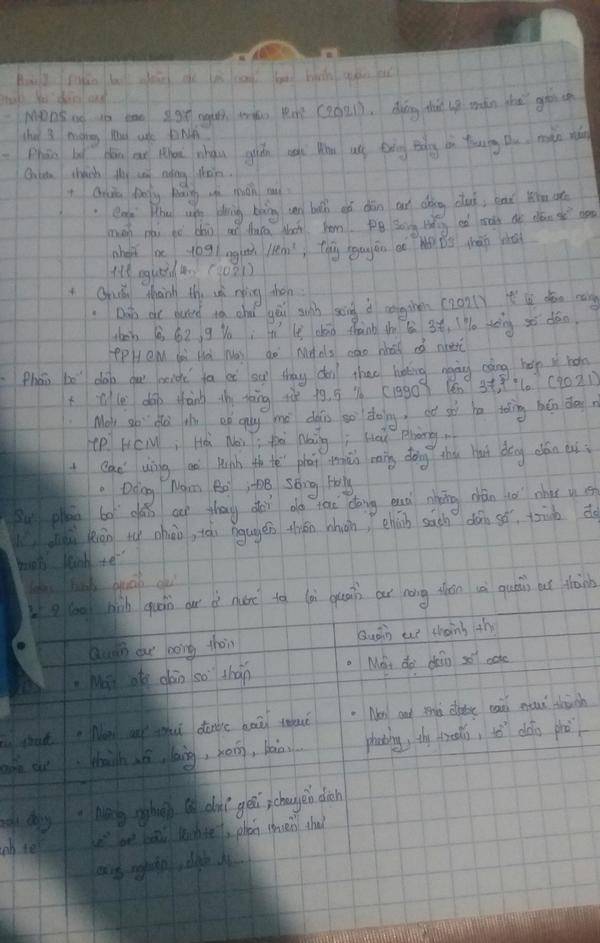 Bài 2 Phân bố dân cư và các loại hình quần cư
bố dân cư
- MĐDS nc ta cao 297 người km² (2021), đứng thứ 48 trên thế giới và
thứ 3 trong khu vực ĐNA
- Phân bố dân cư khác nhau giữa các khu vực Đồng Bằng và Trung Du miền núi
Giữa thành thị và nông thôn.
+ Giữa Đồng Bằng và miền núi:
• Các khu vực đồng bằng ven biển có dân cư đông đúc, các khu vực
miền núi có dân cư thưa thớt hơn. ĐB Sông Hồng có mật độ dân số cao
nhất nc 1091 người/km², Tây nguyên có MĐDS thấp nhất
111 người/km² (2021)
+ Giữa thành thị và nông thôn:
• Dân cư nước ta chủ yếu sinh sống ở nông thôn (2021) tỉ lệ dân nông
thôn là 62,9%; tỉ lệ dân thành thị là 37,1% tổng số dân.
TPHCM và Hà Nội có Mđds cao nhất cả nước
- Phân bố dân cư nước ta có sự thay đổi theo hướng ngày càng hợp lí hơn
+ Tỉ lệ dân thành thị tăng từ 19,5% (1990) lên 37,1% (2021)
Một số đô thị có quy mô dân số đông, cơ sở hạ tầng hiện đại
TP HCM, Hà Nội, Đà Nẵng, Hải Phòng...
+ Các vùng có kinh tế phát triển năng động thu hút đông dân cư:
• Đông Nam Bộ, ĐB Sông Hồng
Sự phân bố dân cư thay đổi do tác động của những nhân tố như vị trí
điều kiện tự nhiên, tài nguyên thiên nhiên, chính sách dân số, trình độ
triển kinh tế
loại hình quần cư
2 loại hình quần cư ở nước ta là quần cư nông thôn và quần cư thành
Quần cư nông thôn
Quần cư thành thị
• Mật độ dân số thấp
• Mật độ dân số cao
• Nơi cư trú được cấu trúc
thành xã, làng, xóm, bản,...
• Nơi cư trú được cấu trúc thành
phường, thị trấn, tổ dân phố...
• Nông nghiệp là chủ yếu, chuyển dịch
về cơ cấu kinh tế, phát triển thêm
công nghiệp, dịch vụ...